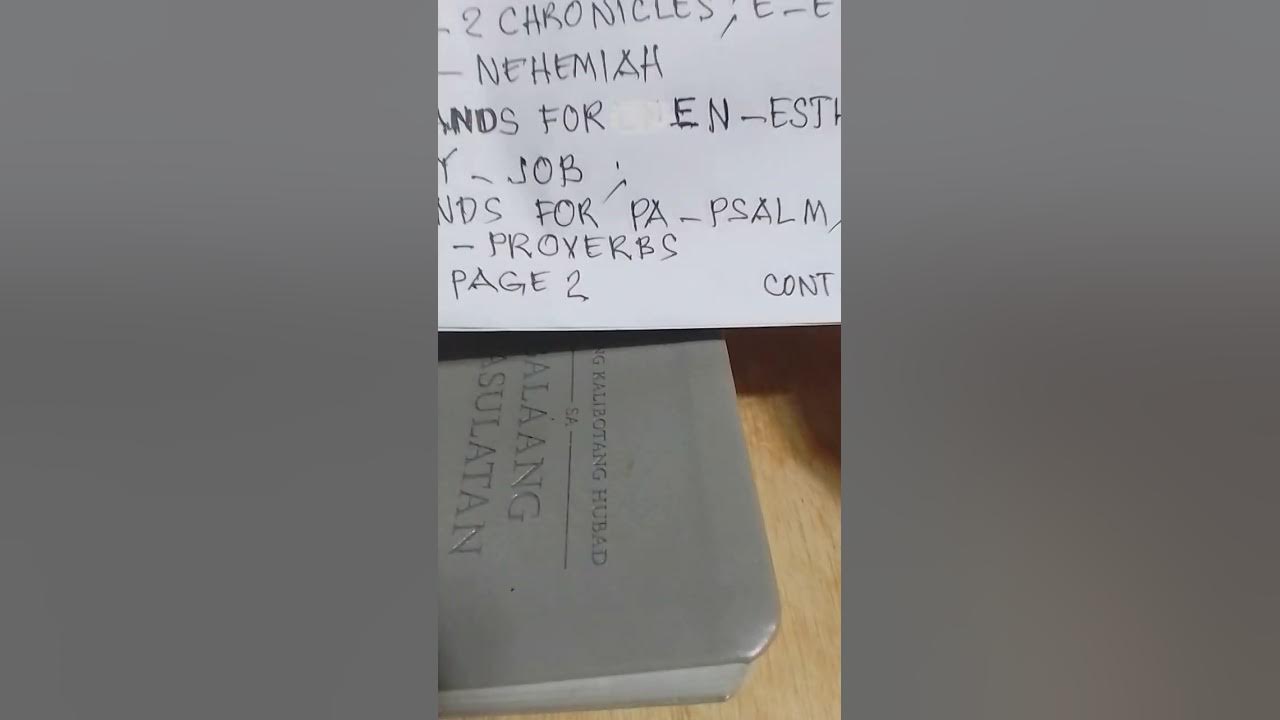 - 2 CHRONICLES; E-E
- NEHEMIAH
ANDS FOR EN-ESTH
Y - JOB ;
NDS FOR PA-PSALM,
- PROVERBS
PAGE 2 CONT
NG KALIBOTANG HUBAD
SA
ALAANG
ASULATAN